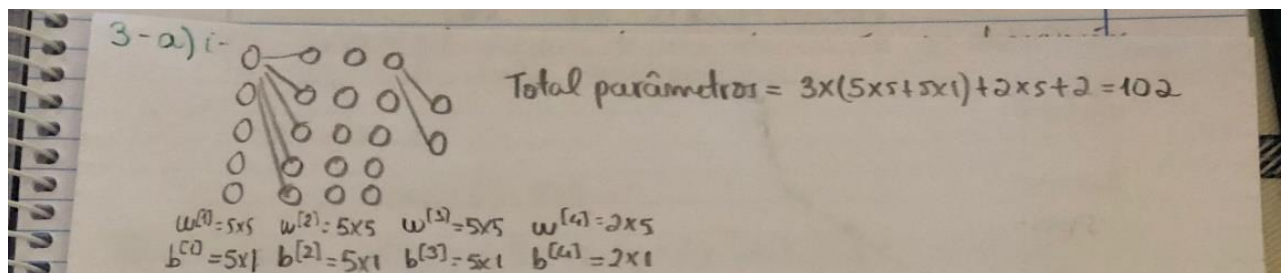 3-a) i-
Total parâmetros = 3x(5x5+5x1)+2x5+2=102
w[1]=5x5 w[2]=5x5 w[3]=5x5 w[4]=2x5
b[1]=5x1 b[2]=5x1 b[3]=5x1 b[4]=2x1